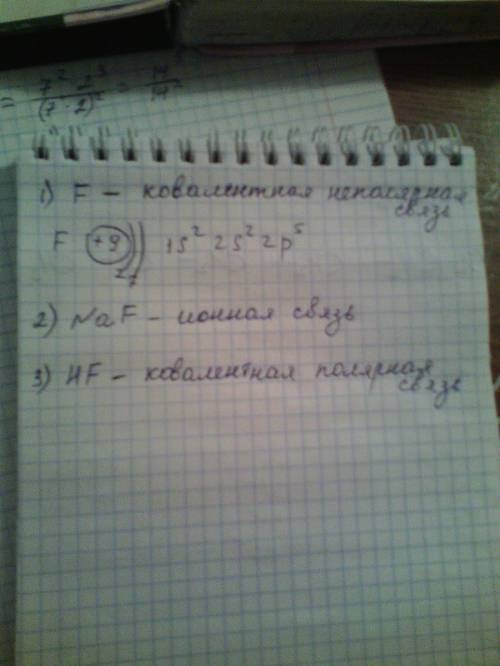 = 7² · 2³ / (7 · 2)² = 14 / 14
1) F – ковалентная неполярная
связь
F +9 )) 1s² 2s² 2p⁵
2 7
2) NaF – ионная связь
3) HF – ковалентная полярная
связь